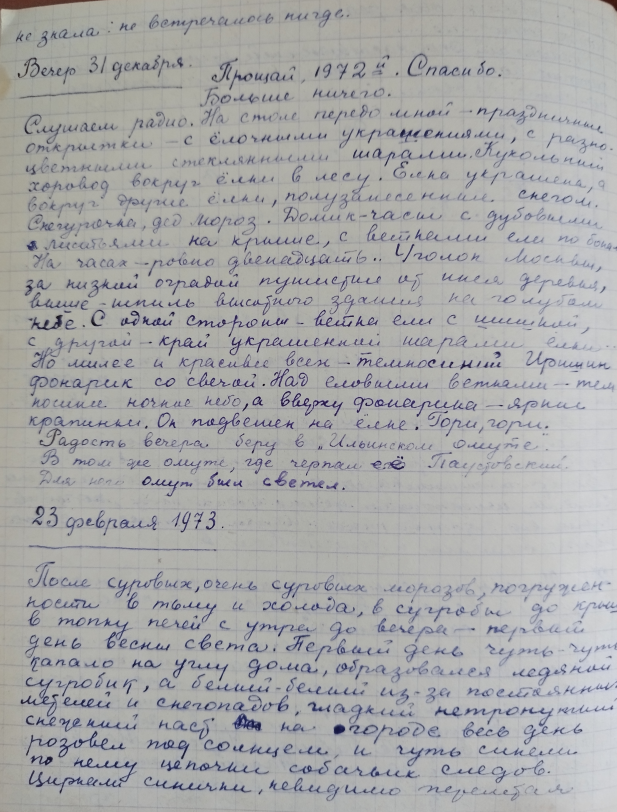 не знала: не встречалось нигде.
Вечер 31 декабря.
Прощай, 1972й. Спасибо.
Больше ничего.
Слушаем радио. На столе передо мной – праздничные
открытки – с ёлочными украшениями, с разно-
цветными стеклянными шарами. Кукольный
хоровод вокруг ёлки в лесу. Ёлка украшена, а
вокруг другие ёлки, полузанесенные снегом.
Снегурочка, дед Мороз. Домик-часы с дубовыми
листьями на крыше, с ветками ели по бокам.
На часах – ровно двенадцать.. Уголок Москвы,
за низкой оградой пушистые от инея деревья,
выше – шпиль высотного здания на голубом
небе. С одной стороны – ветка ели с шишкой,
с другой – край украшенной шарами ёлки..
Но милее и красивее всех – темносиний Иришин
фонарик со свечой. Над еловыми ветками – тем
носинее ночное небо, а вверху фонарика – яркие
крапинки. Он подвешен на ёлке. Гори, гори.
Радость вечера беру в "Ильинском омуте".
В том же омуте, где черпал её Паустовский.
Для него омут был светел.
23 февраля 1973.
После суровых, очень суровых морозов, погружен-
ности в тьму и холода, в сугробы до крыш
в топку печей с утра до вечера – первый
день весны света. Первый день чуть-чуть
капало на углу дома, образовался ледяной
сугробик, а белый-белый из-за постоянных
метелей и снегопадов, гладкий нетронутый
снежный наст на огороде весь день
розовел под солнцем, и чуть синели
по нему цепочки собачьих следов.
Циркали синички, невидимо перелетая